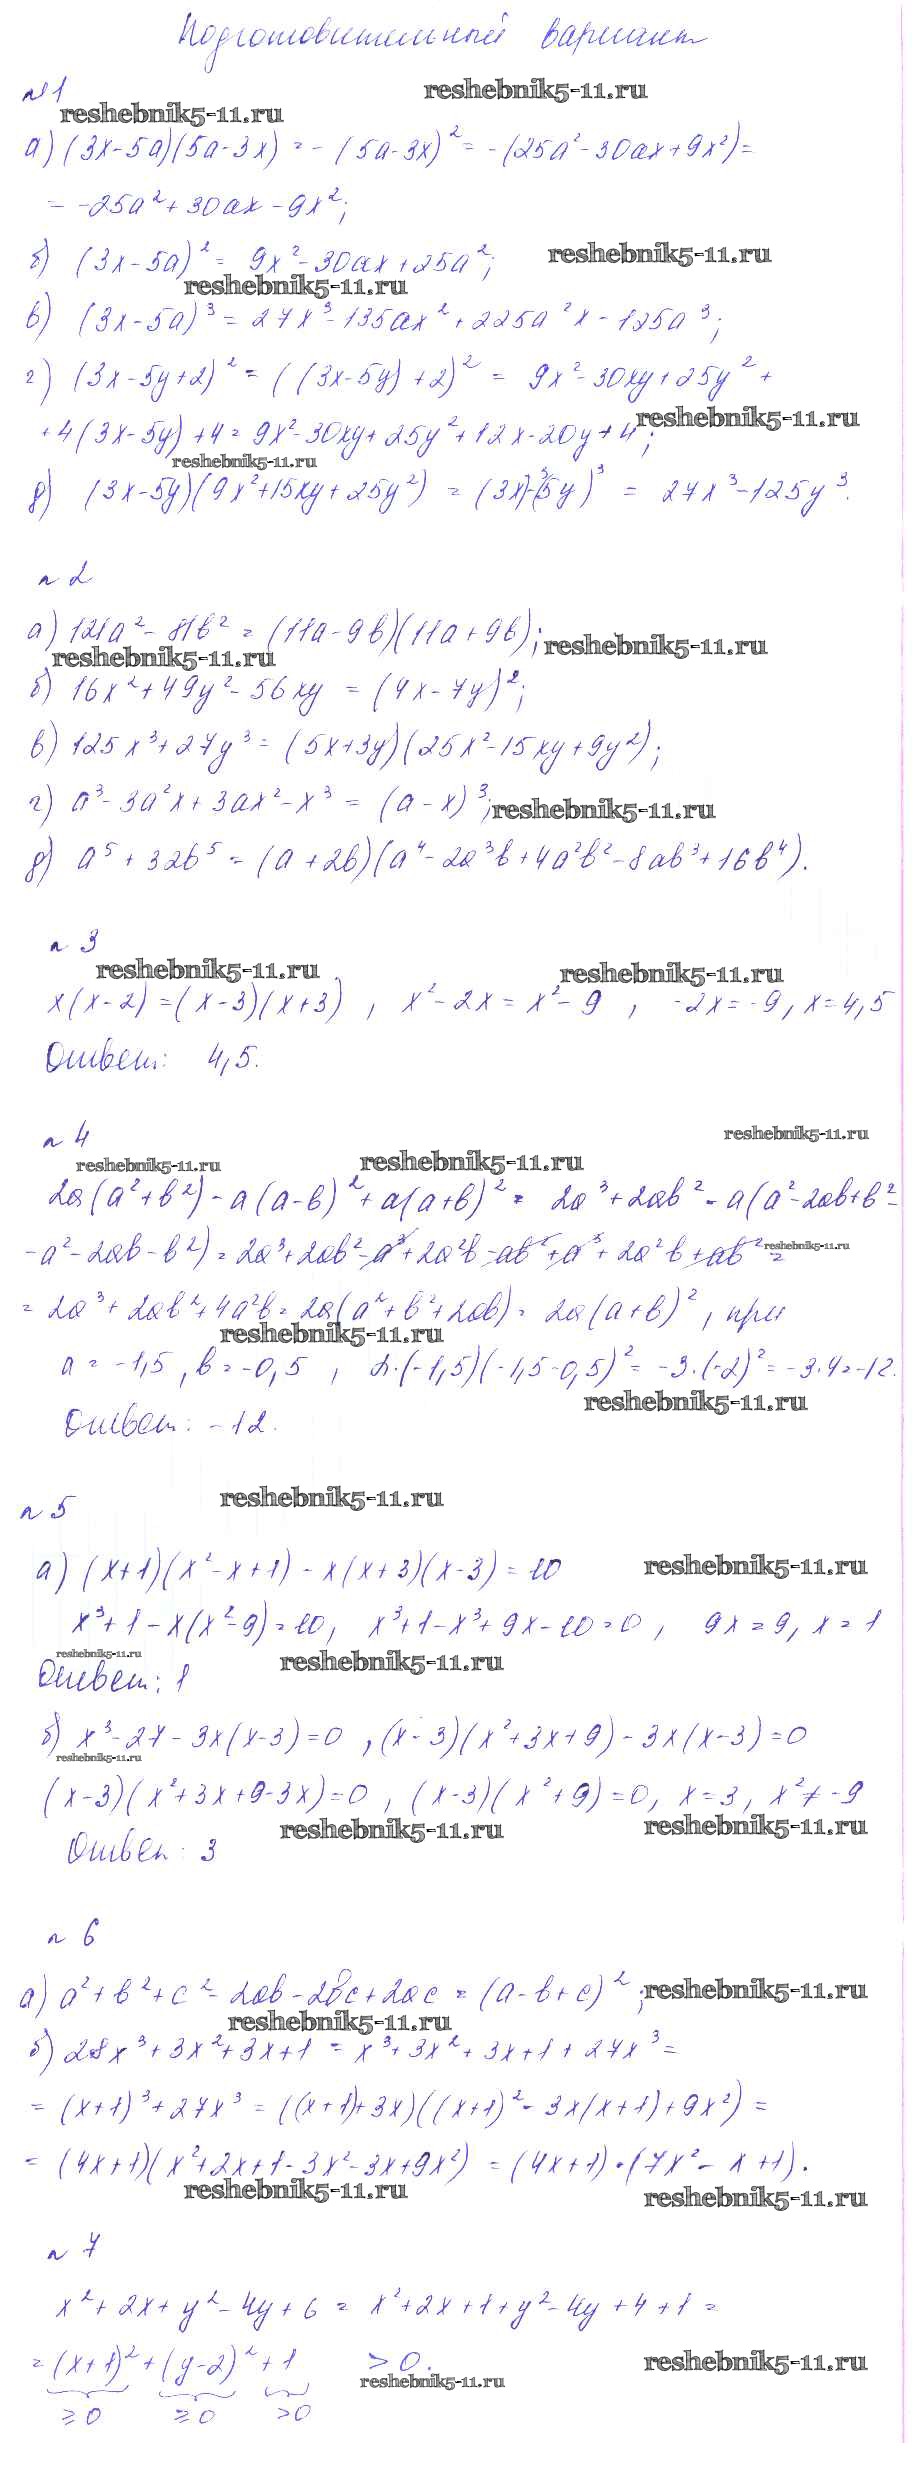 Подготовительный вариант
№1
reshebnik5-11.ru
reshebnik5-11.ru
а) (3x-5a)(5a-3x) = -(5a-3x)² = -(25a²-30ax+9x²) =
= -25a²+30ax-9x²;
б) (3x-5a)² = 9x²-30ax+25a²;
reshebnik5-11.ru
reshebnik5-11.ru
в) (3x-5a)³ = 27x³-135ax²+225a²x-125a³;
г) (3x-5y+2)² = ((3x-5y)+2)² = 9x²-30xy+25y²+
reshebnik5-11.ru
+4(3x-5y)+4 = 9x²-30xy+25y²+12x-20y+4;
reshebnik5-11.ru
д) (3x-5y)(9x²+15xy+25y²) = (3x)³-(5y)³ = 27x³-125y³.
№2
а) 121a²-81b² = (11a-9b)(11a+9b);
reshebnik5-11.ru
reshebnik5-11.ru
б) 16x²+49y²-56xy = (4x-7y)²;
в) 125x³+27y³ = (5x+3y)(25x²-15xy+9y²);
г) a³-3a²x+3ax²-x³ = (a-x)³;
reshebnik5-11.ru
д) a⁵+32b⁵ = (a+2b)(a⁴-2a³b+4a²b²-8ab³+16b⁴).
№3
reshebnik5-11.ru
reshebnik5-11.ru
x(x-2) = (x-3)(x+3), x²-2x = x²-9, -2x = -9, x = 4,5
Ответ: 4,5.
№4
reshebnik5-11.ru
reshebnik5-11.ru
reshebnik5-11.ru
2a(a²+b²)-a(a-b)²+a(a+b)² = 2a³+2ab²-a(a²-2ab+b²-
-a²-2ab-b²) = 2a³+2ab²-a³+2a²b-ab²+a³+2a²b+ab² =
reshebnik5-11.ru
= 2a³+2ab²+4a²b = 2a(a²+b²+2ab) = 2a(a+b)², при
reshebnik5-11.ru
a = -1,5, b = -0,5, 2·(-1,5)(-1,5-0,5)² = -3·(-2)² = -3·4 = -12.
reshebnik5-11.ru
Ответ: -12.
reshebnik5-11.ru
№5
а) (x+1)(x²-x+1)-x(x+3)(x-3) = 10
reshebnik5-11.ru
x³+1-x(x²-9) = 10, x³+1-x³+9x-10 = 0, 9x = 9, x = 1
reshebnik5-11.ru
reshebnik5-11.ru
Ответ: 1
б) x³-27-3x(x-3) = 0, (x-3)(x²+3x+9)-3x(x-3) = 0
reshebnik5-11.ru
(x-3)(x²+3x+9-3x) = 0, (x-3)(x²+9) = 0, x = 3, x² ≠ -9
reshebnik5-11.ru
reshebnik5-11.ru
Ответ: 3
№6
а) a²+b²+c²-2ab-2bc+2ac = (a-b+c)²;
reshebnik5-11.ru
reshebnik5-11.ru
б) 28x³+3x²+3x+1 = x³+3x²+3x+1+27x³ =
= (x+1)³+27x³ = ((x+1)+3x)((x+1)²-3x(x+1)+9x²) =
= (4x+1)(x²+2x+1-3x²-3x+9x²) = (4x+1)·(7x²-x+1).
reshebnik5-11.ru
reshebnik5-11.ru
№7
x²+2x+y²-4y+6 = x²+2x+1+y²-4y+4+1 =
= (x+1)²+(y-2)²+1 > 0.
reshebnik5-11.ru
reshebnik5-11.ru
≥0 ≥0 >0